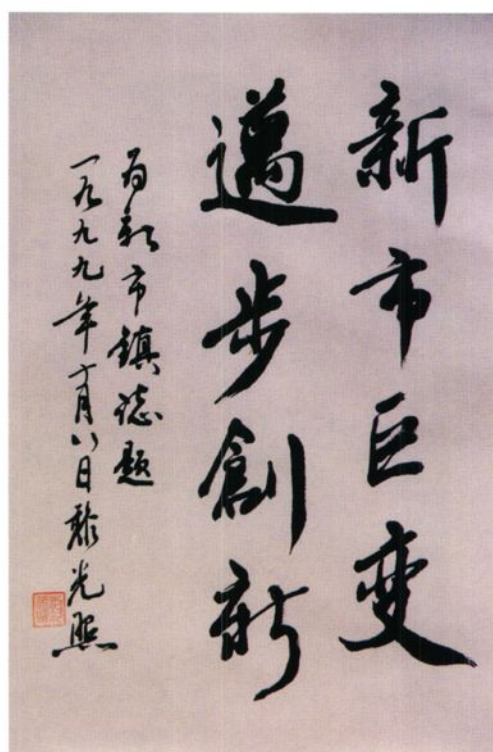 新市巨变
邁步創新
为新市鎮誌題
一九九九年十月八日黎光照